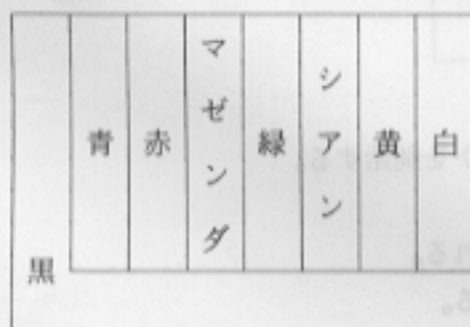 黒
青
赤
マゼンダ
緑
シアン
黄
白